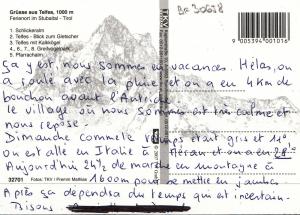 Grüsse aus Telfes, 1000 m
Ferienort im Stubaital - Tirol
1. Schlickeralm
2. Telfes - Blick zum Gletscher
3. Telfes mit Kalkkögel
4., 6., 7., 8. Greilvogelnest
5. Pfarrachalm
9 005394 001016
ça y est, nous sommes en vacances. Hélas, on
a joué avec la pluie et on a eu 4 km de
bouchon avant l'Autriche
le village où nous sommes est très calme et
nous repose.
Dimanche comme le temps était gris et 11°
on est allé en Italie à Meran on a eu 28°
Aujourd'hui 2h½ de marche en montagne à
1600m pour se mettre en jambes
Après ça dependra du temps qui est incertain.
Bisous
32701 Foto: TKV / Fremd. Mathias